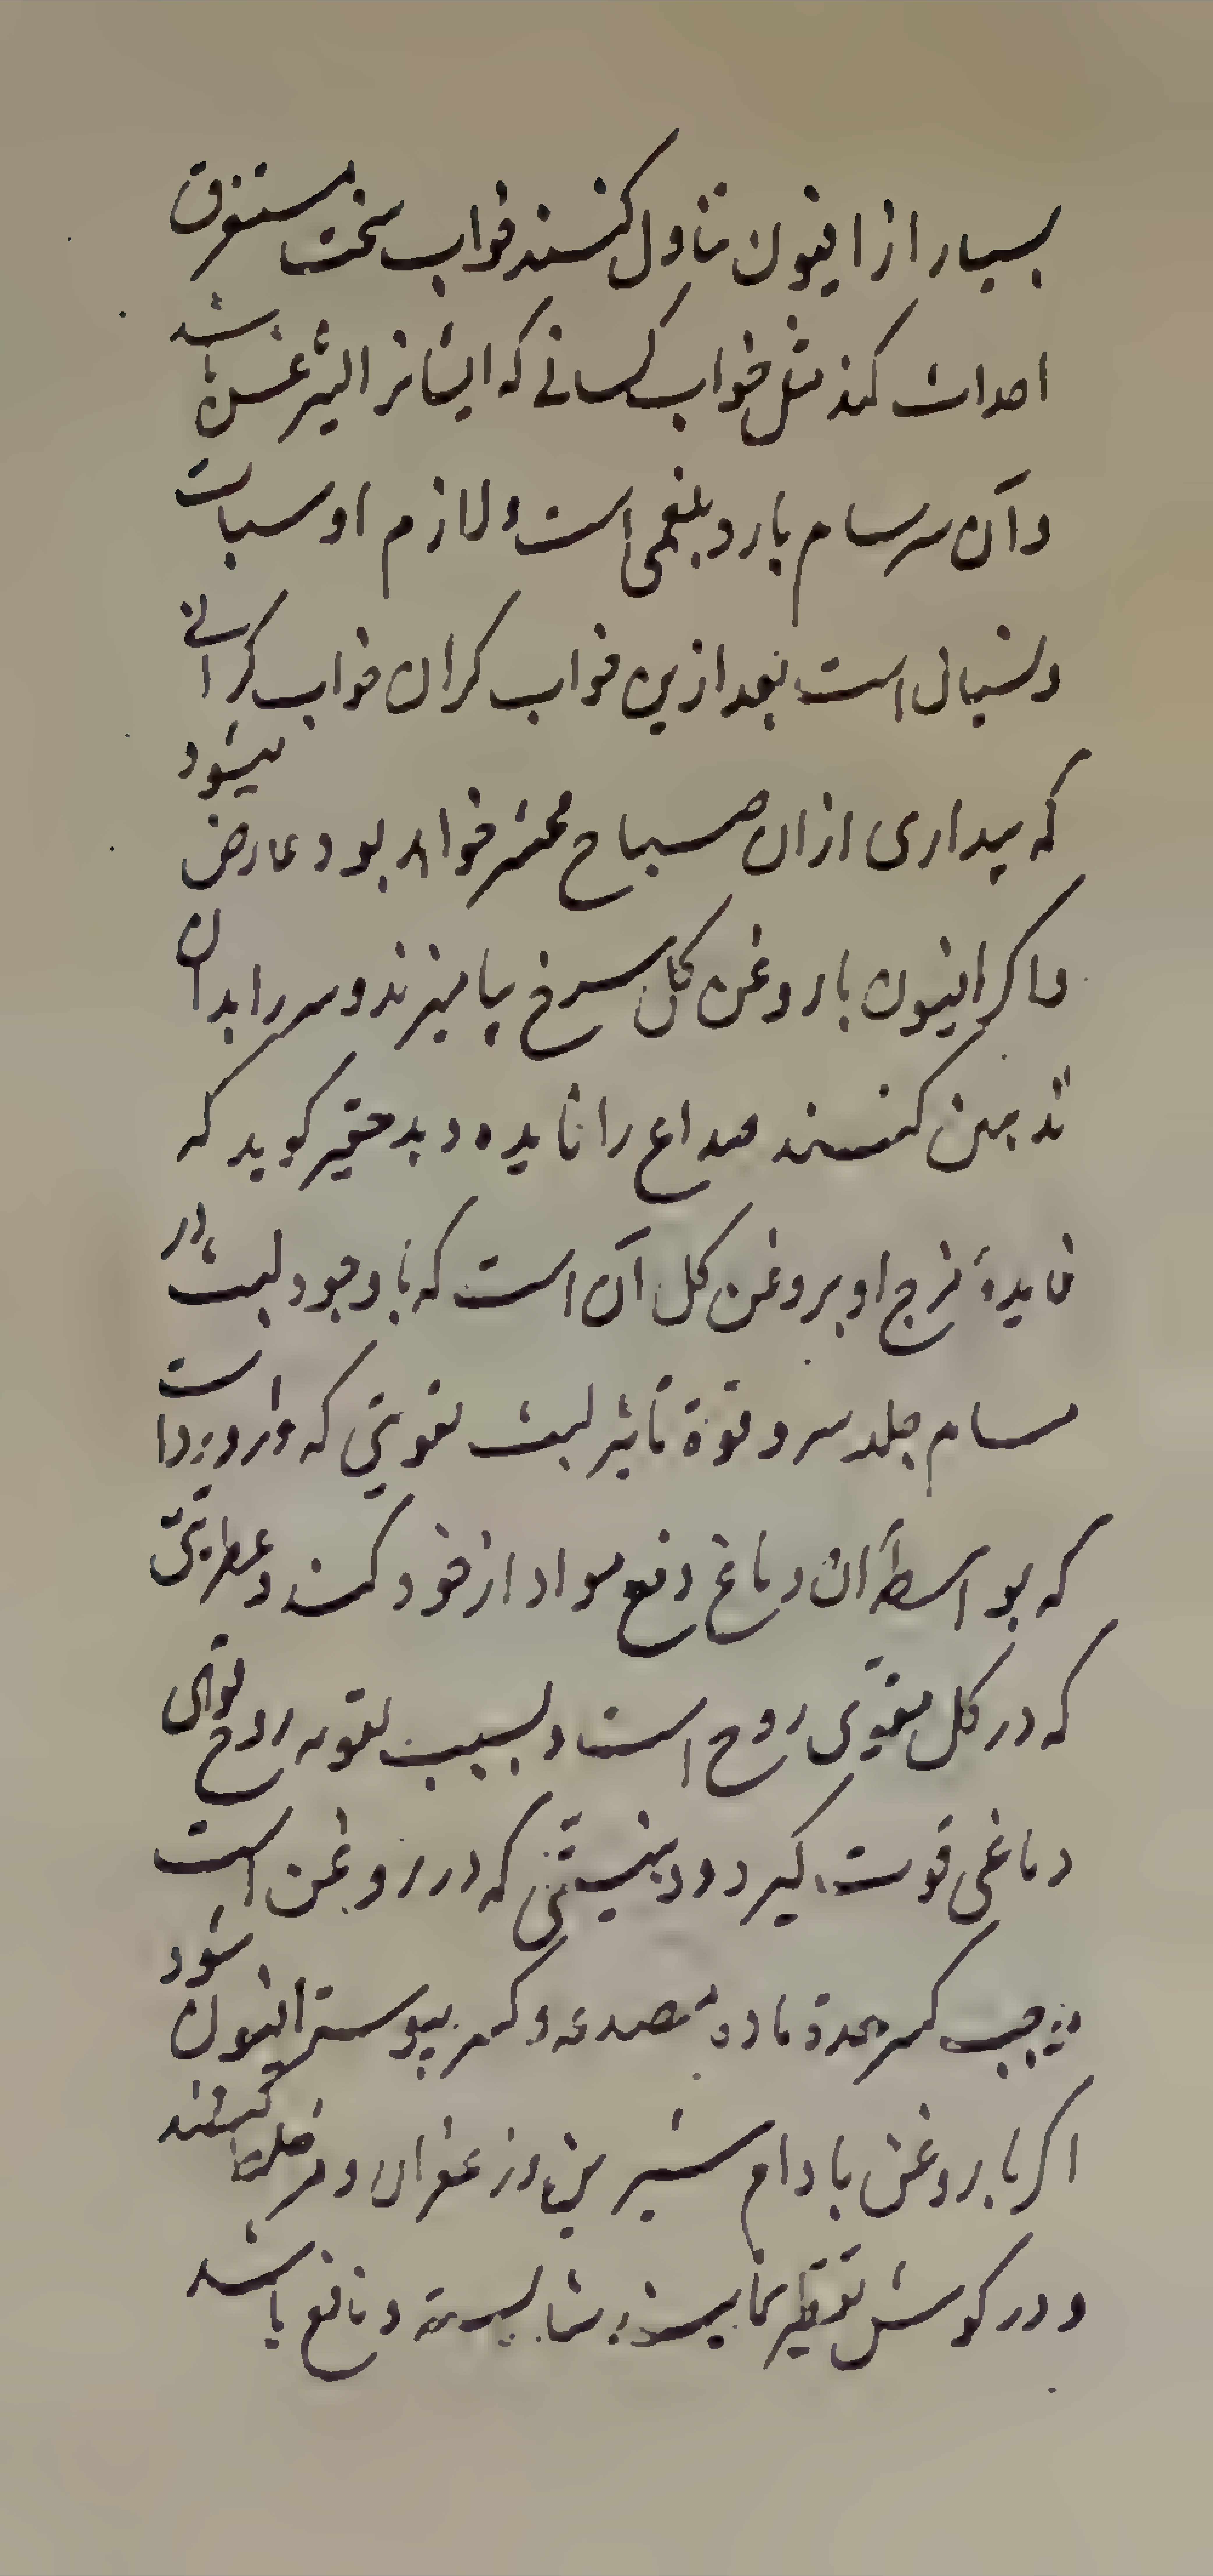 بسیار از افیون تناول کنند خواب سخت مستغرق
احداث کند مثل خواب کسانے که ایشانرا لیثرغس باشد
و آن سرسام بارد بلغمی است و لازم او سبات
و نسیان است بعد ازین خواب کران خواب کرانے
که بیداری ازان صباح محشر خواهد بود عارض میشود
و اکر افیون با روغن کل سرخ بیامیزند و سر را بدان
تدهین کنند صداع را فایده دهد حقیر کوید که
فایدهٔ مزج او بروغن کل آن است که باوجود لبث در
مسام جلد سر و قوة تاثیر لبث تقویتی که در ورد است
که بواسطهٔ آن دماغ دفع مواد از خود کند و عطریتی
که در کل مقوی روح است و بسبب تقویه روح قوای
دماغی قوت کیرد و دهنیتی که در روغن است
موجب کسر حدة مادهٔ مصدعه و کسر یبوست افیون شود
اکر با روغن بادام شیرین و زعفران و مر خلط کنند
و در کوش تقطیر نمایند شایسته و نافع باشد